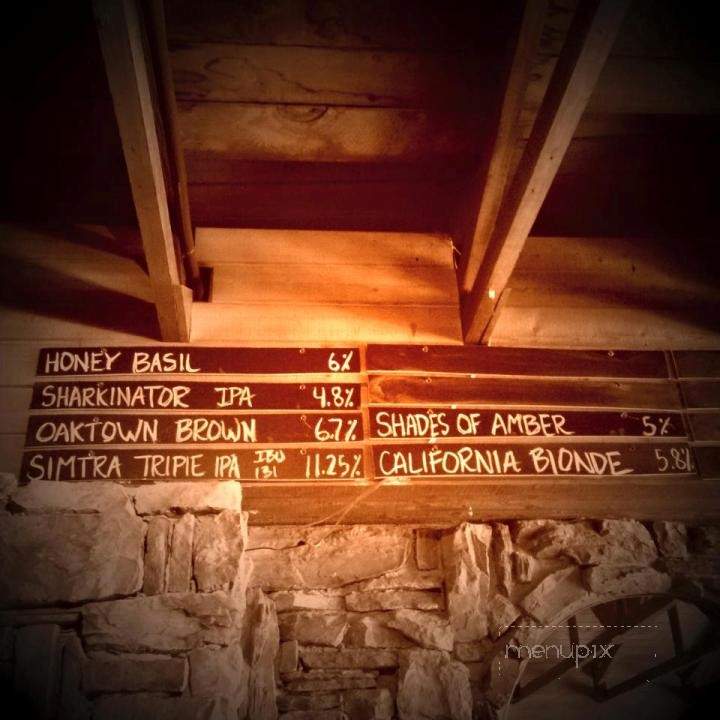 HONEY BASIL 6%
SHARKINATOR IPA 4.8%
OAKTOWN BROWN 6.7%
SIMTRA TRIPLE IPA IBU 131 11.25%
SHADES OF AMBER 5%
CALIFORNIA BLONDE 5.8%
menupix